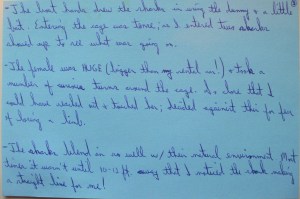 - The boat hands drew the sharks in using the dummy & a little
bait. Entering the cage was tense; as I entered two sharks
showed up to see what was going on.
- The female was HUGE (bigger than my rental car!) & took a
number of turns around the cage. So close that I
could have reached out & touched her; decided against this for fear
of losing a limb.
- The sharks blend in so well w/ their natural environment. Most
times it wasn't until 10-12 ft. away that I noticed the shark making
a straight line for me!